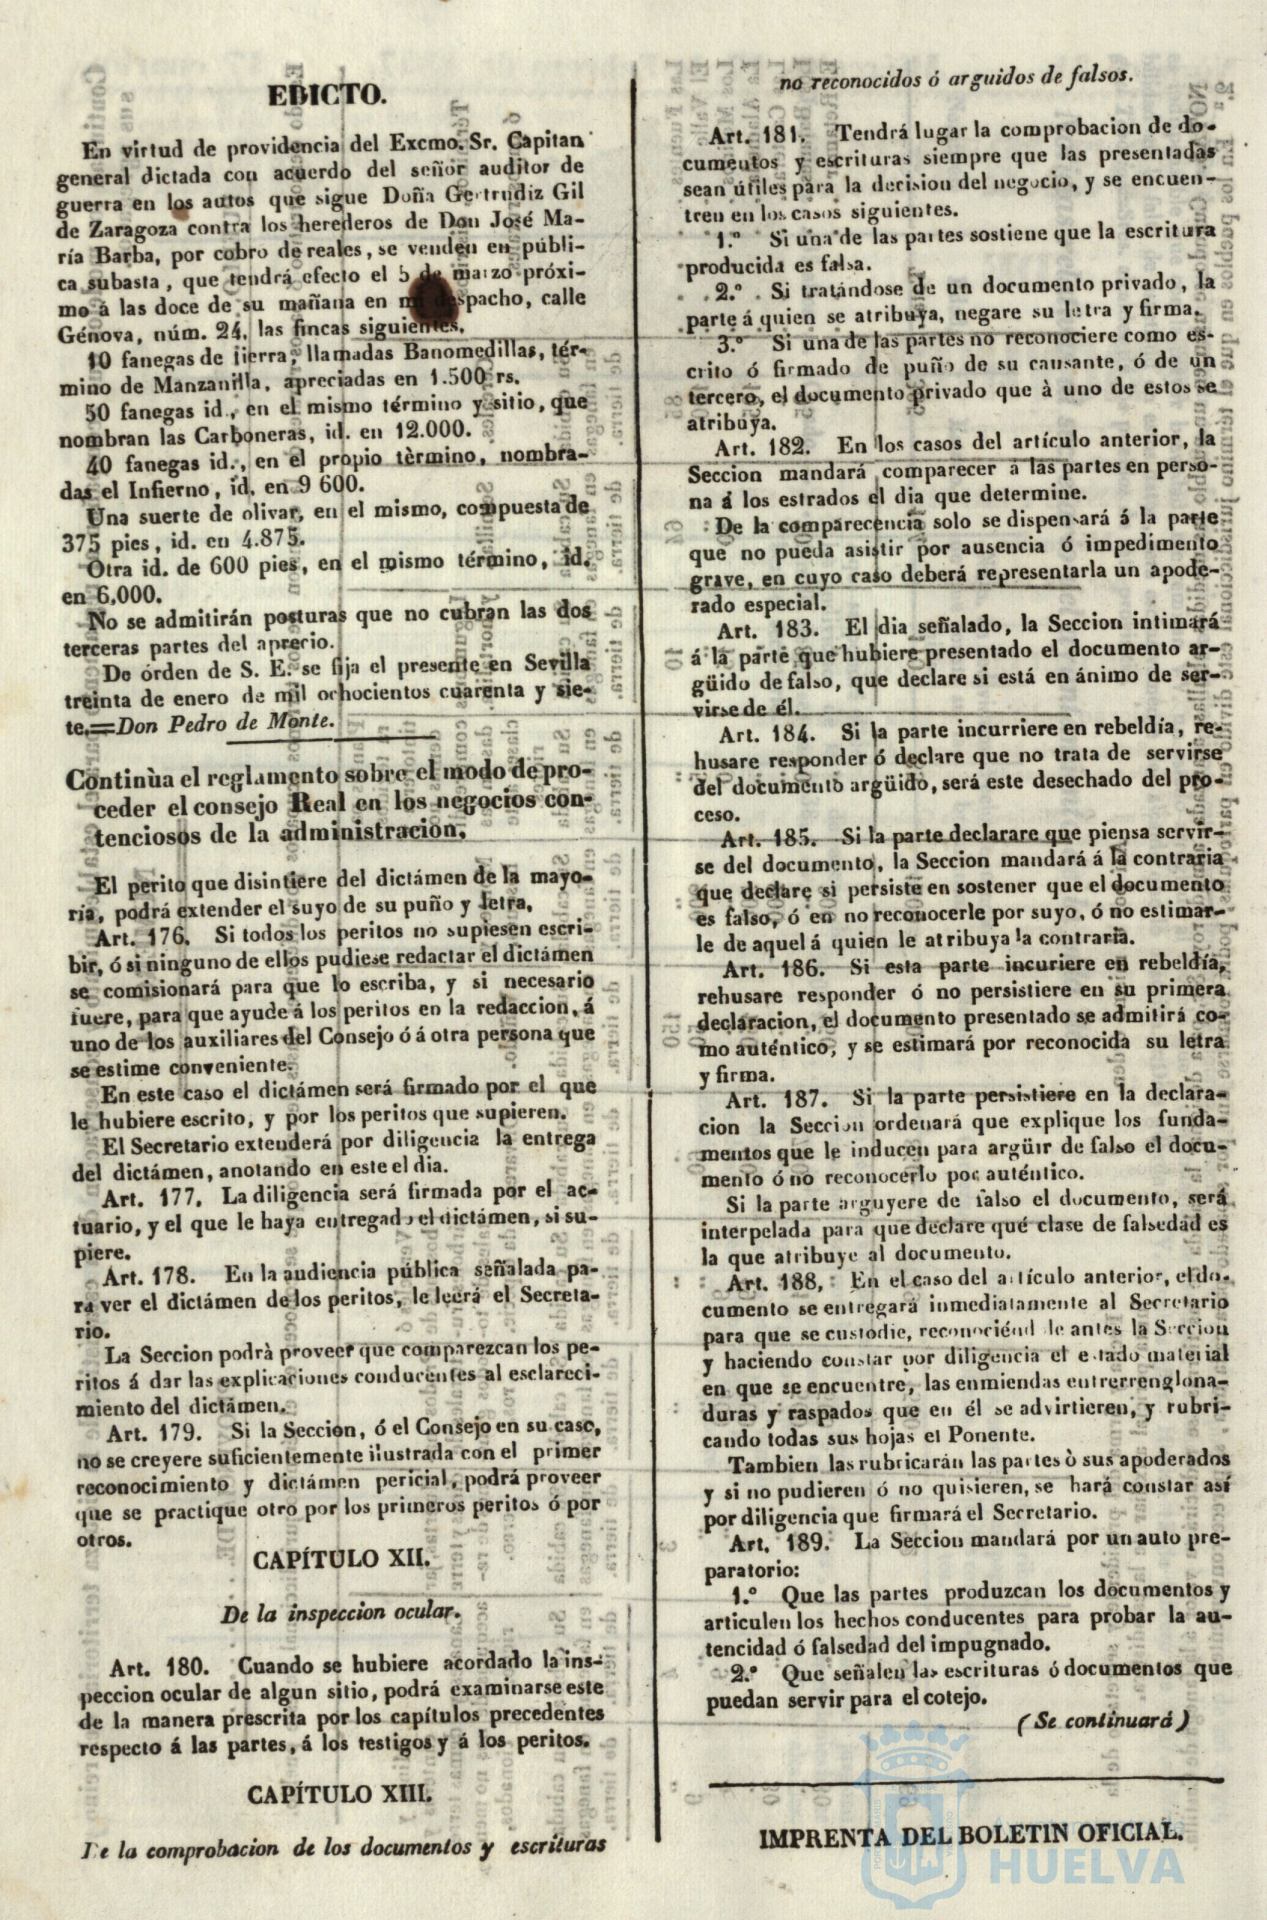 EDICTO.
En virtud de providencia del Excmo. Sr. Capitan
general dictada con acuerdo del señor auditor de
guerra en los autos que sigue Doña Gertrudiz Gil
de Zaragoza contra los herederos de Don José Ma-
ría Barba, por cobro de reales, se venden en públi-
ca subasta, que tendrá efecto el 5 de marzo próxi-
mo á las doce de su mañana en mi despacho, calle
Génova, núm. 24, las fincas siguientes.
10 fanegas de tierra, llamadas Banomedillas, tér-
mino de Manzanilla, apreciadas en 1.500 rs.
50 fanegas id., en el mismo término y sitio, que
nombran las Carboneras, id. en 12.000.
40 fanegas id., en el propio tèrmino, nombra-
das el Infierno, id. en 9 600.
Una suerte de olivar, en el mismo, compuesta de
375 pies, id. en 4.875.
Otra id. de 600 pies, en el mismo término, id.
en 6,000.
No se admitirán posturas que no cubran las dos
terceras partes del aprecio.
De órden de S. E. se fija el presente en Sevilla
treinta de enero de mil ochocientos cuarenta y sie-
te.=Don Pedro de Monte.
Continùa el reglamento sobre el modo de pro-
ceder el consejo Real en los negocios con-
tenciosos de la administracion.
El perito que disintiere del dictámen de la mayo-
ría, podrá extender el suyo de su puño y letra.
Art. 176. Si todos los peritos no supiesen escri-
bir, ó si ninguno de ellos pudiese redactar el dictámen
se comisionará para que lo escriba, y si necesario
fuere, para que ayude á los peritos en la redaccion, á
uno de los auxiliares del Consejo ó á otra persona que
se estime conveniente.
En este caso el dictámen será firmado por el que
le hubiere escrito, y por los peritos que supieren.
El Secretario extenderá por diligencia la entrega
del dictámen, anotando en este el dia.
Art. 177. La diligencia será firmada por el ac-
tuario, y el que le haya entregado el dictámen, si su-
piere.
Art. 178. En la audiencia pública señalada pa-
ra ver el dictámen de los peritos, le leerá el Secreta-
rio.
La Seccion podrà proveer que comparezcan los pe-
ritos á dar las explicaciones conducentes al esclareci-
miento del dictámen.
Art. 179. Si la Seccion, ó el Consejo en su caso,
no se creyere suficientemente ilustrada con el primer
reconocimiento y dictámen pericial, podrá proveer
que se practique otro por los primeros peritos ó por
otros.
CAPÍTULO XII.
De la inspeccion ocular.
Art. 180. Cuando se hubiere acordado la ins-
peccion ocular de algun sitio, podrá examinarse este
de la manera prescrita por los capítulos precedentes
respecto á las partes, á los testigos y á los peritos.
CAPÍTULO XIII.
De la comprobacion de los documentos y escrituras
no reconocidos ó arguidos de falsos.
Art. 181. Tendrá lugar la comprobacion de do-
cumentos y escrituras siempre que las presentadas
sean útiles para la decision del negocio, y se encuen-
tren en los casos siguientes.
1.º Si una de las partes sostiene que la escritura
producida es falsa.
2.º Si tratándose de un documento privado, la
parte á quien se atribuya, negare su letra y firma.
3.º Si una de las partes no reconociere como es-
crito ó firmado de puño de su causante, ó de un
tercero, el documento privado que à uno de estos se
atribúya.
Art. 182. En los casos del artículo anterior, la
Seccion mandará comparecer á las partes en perso-
na á los estrados el dia que determine.
De la comparecencia solo se dispensará á la parte
que no pueda asistir por ausencia ó impedimento
grave, en cuyo caso deberá representarla un apode-
rado especial.
Art. 183. El dia señalado, la Seccion intimará
á la parte que hubiere presentado el documento ar-
güido de falso, que declare si está en ánimo de ser-
virse de él.
Art. 184. Si la parte incurriere en rebeldía, re-
husare responder ó declare que no trata de servirse
del documento argüido, será este desechado del pro-
ceso.
Art. 185. Si la parte declarare que piensa servir-
se del documento, la Seccion mandará á la contraria
que declare si persiste en sostener que el documento
es falso, ó en no reconocerle por suyo, ó no estimar-
le de aquel á quien le atribuya la contraria.
Art. 186. Si esta parte incuriere en rebeldía,
rehusare responder ó no persistiere en su primera
declaracion, el documento presentado se admitirá co-
mo auténtico, y se estimará por reconocida su letra
y firma.
Art. 187. Si la parte persistiere en la declara-
cion la Seccion ordenará que explique los funda-
mentos que le inducen para argüir de falso el docu-
mento ó no reconocerlo por auténtico.
Si la parte arguyere de falso el documento, será
interpelada para que declare qué clase de falsedad es
la que atribuye al documento.
Art. 188, En el caso del artículo anterior, el do-
cumento se entregará inmediatamente al Secretario
para que se custodie, reconociéndole antes la Seccion
y haciendo constar por diligencia el estado material
en que se encuentre, las enmiendas entrerrenglona-
duras y raspados que en él se advirtieren, y rubri-
cando todas sus hojas el Ponente.
Tambien las rubricarán las partes ò sus apoderados
y si no pudieren ó no quisieren, se hará constar así
por diligencia que firmará el Secretario.
Art. 189. La Seccion mandará por un auto pre-
paratorio:
1.º Que las partes produzcan los documentos y
articulen los hechos conducentes para probar la au-
tencidad ó falsedad del impugnado.
2.º Que señalen las escrituras ó documentos que
puedan servir para el cotejo.
(Se continuará)
IMPRENTA DEL BOLETIN OFICIAL.
HUELVA